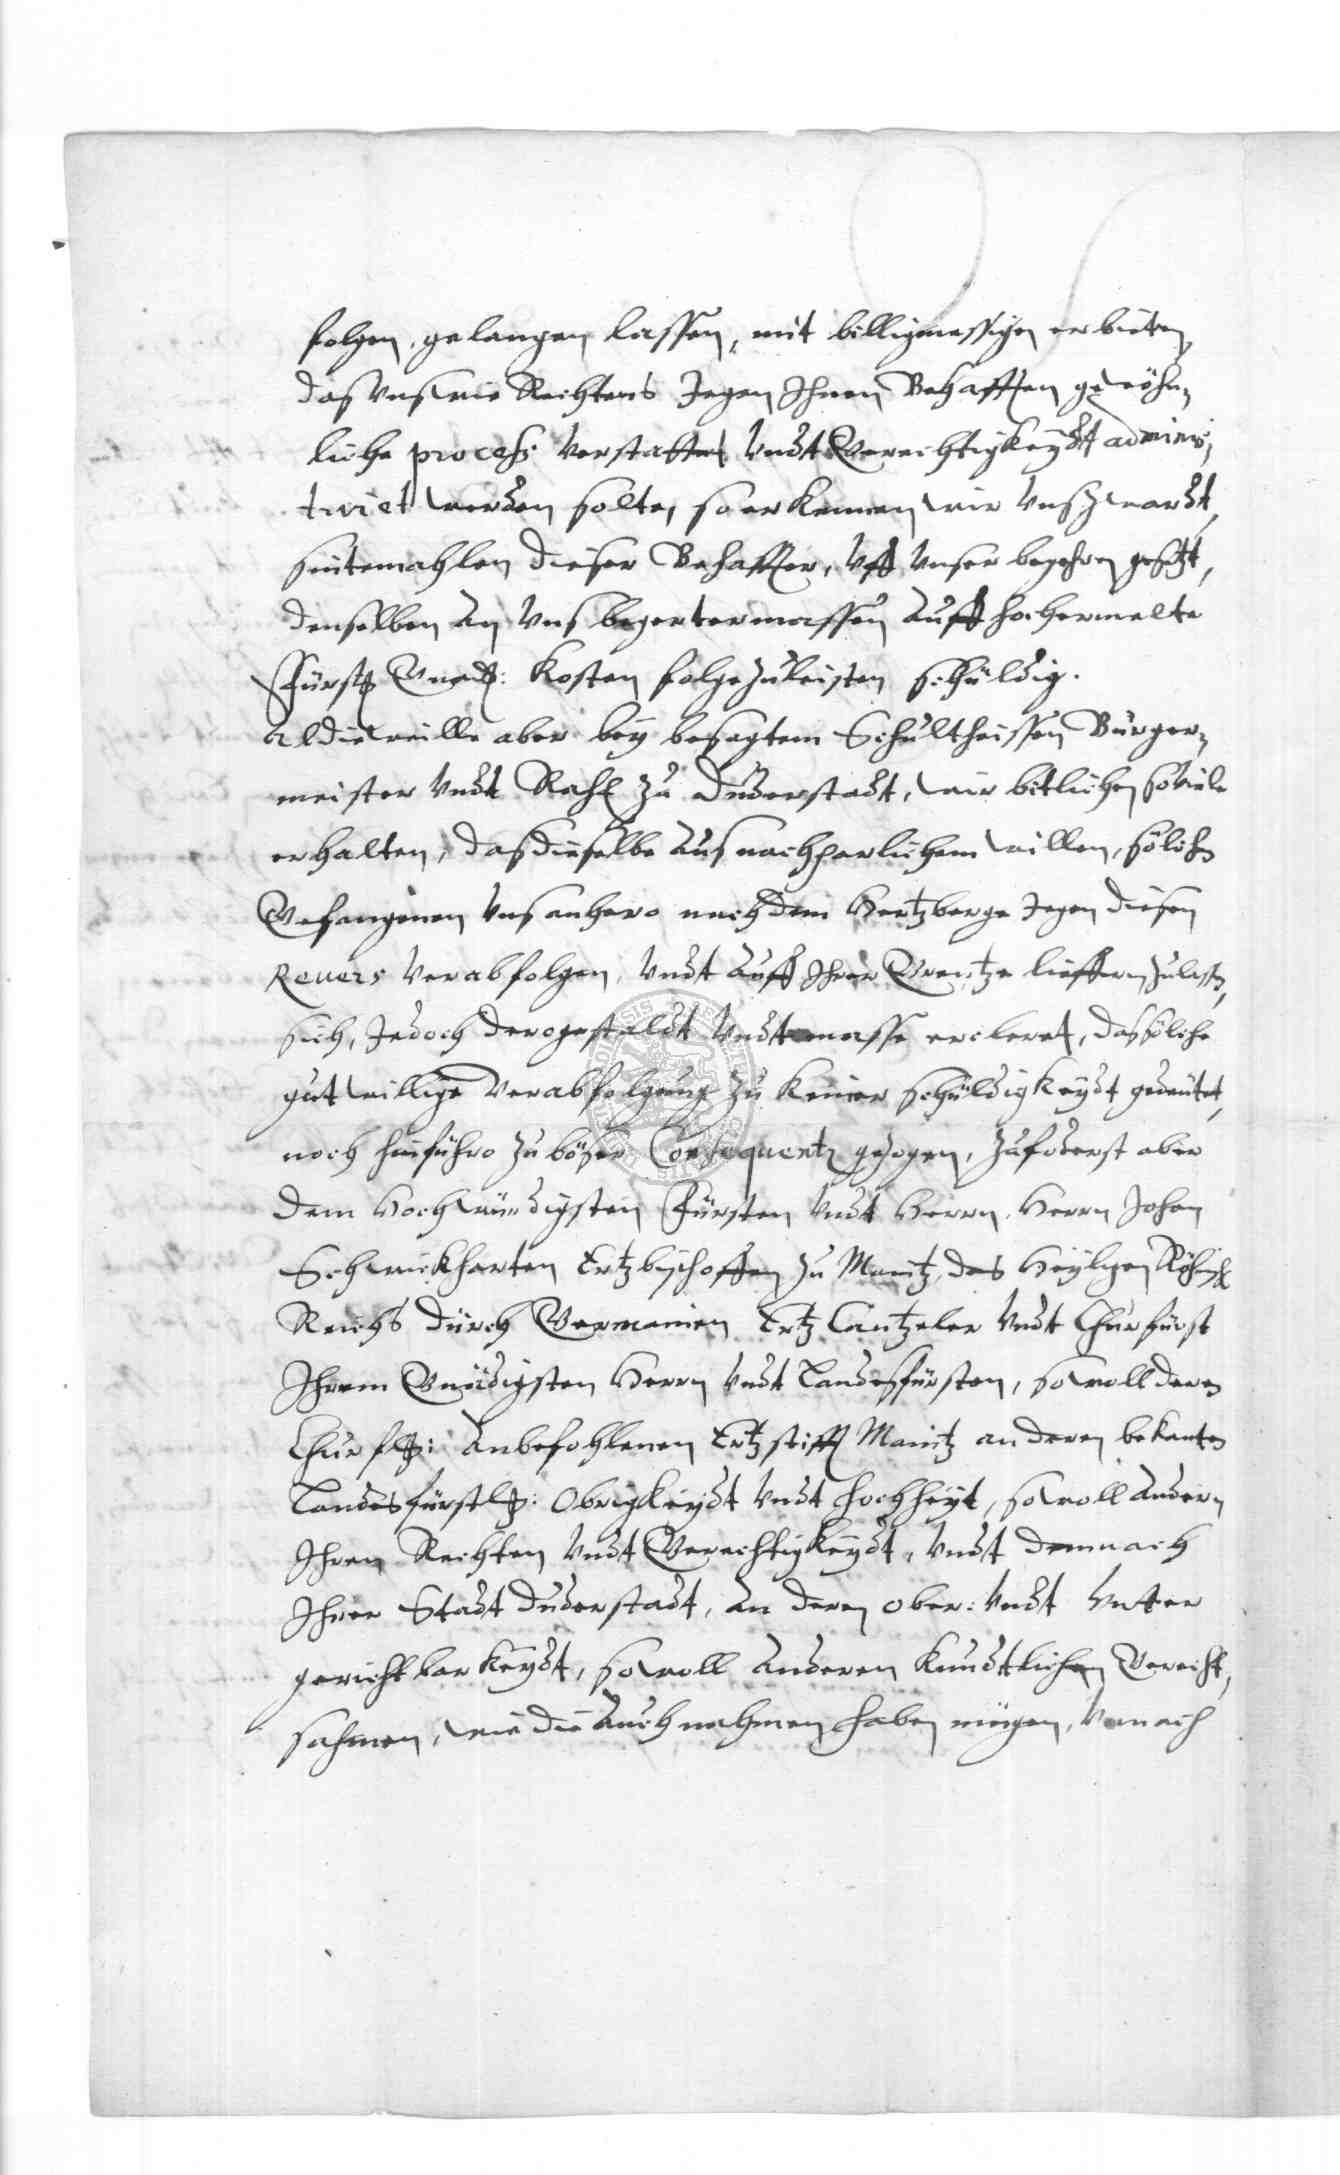 folgen, gelangen lassen, mit billigmessigen erbieten,
das vns wie Rechtens Jegen Jhnen Behafften gewöhn„
liche process verstattet vndt Gerechtigkeydt adminis„
triet werden solte, so erkennen wir vns zwardt,
sintemahlen dieser Behaffter, vff vnser begehren gesetzt,
denselben an vns begertermassen auff hochermelte
Fürstl: Gnad: Kosten folge zuleisten schüldig.
Aldieweille aber bey besagtem Schultheissen Bürger„
meister vndt Raht zu Duderstadt, wir bitlichen soviele
erhalten, das dieselbe aus nachparlichem willen, solche
Gefangenen vns anhero nach dem Hertzberge Jegen diesen
Reuers verabfolgen, vndt auff Jhrer Grentze lieffern zulassen,
sich, Jedoch derogestaldt vndt masse ercleret, das solche
gutwillige verabfolgung zu keiner schüldigkeydt gedeutet,
noch hinführo zu böser Consequentz gezogen, zufoderst aber
dem Hochwürdigsten Fürsten vndt Herrn, Herrn Johan
Schweickharten Ertzbischoffen zu Maintz, des Heyligen Röhmisch:
Reichs durch Germanien Ertz Cantzeler vndt Churfürst
Jhrem Gnädigsten Herrn vndt Landesfürsten, so woll deren
Churfl: anbefohlenen Ertzstifft Maintz an deren bekanten
Landesfürstl: Obrigkeydt vndt Hochheyt, so woll andern
Jhren Rechten vndt Gerechtigkeydt, vndt demnach
Jhrer Stadt Duderstadt, an deren ober: vndt vnter
gerichtbarkeydt, so woll anderen kundtlichen Gerecht„
sahmen, wie die auch nahmen haben mügen, vnnach